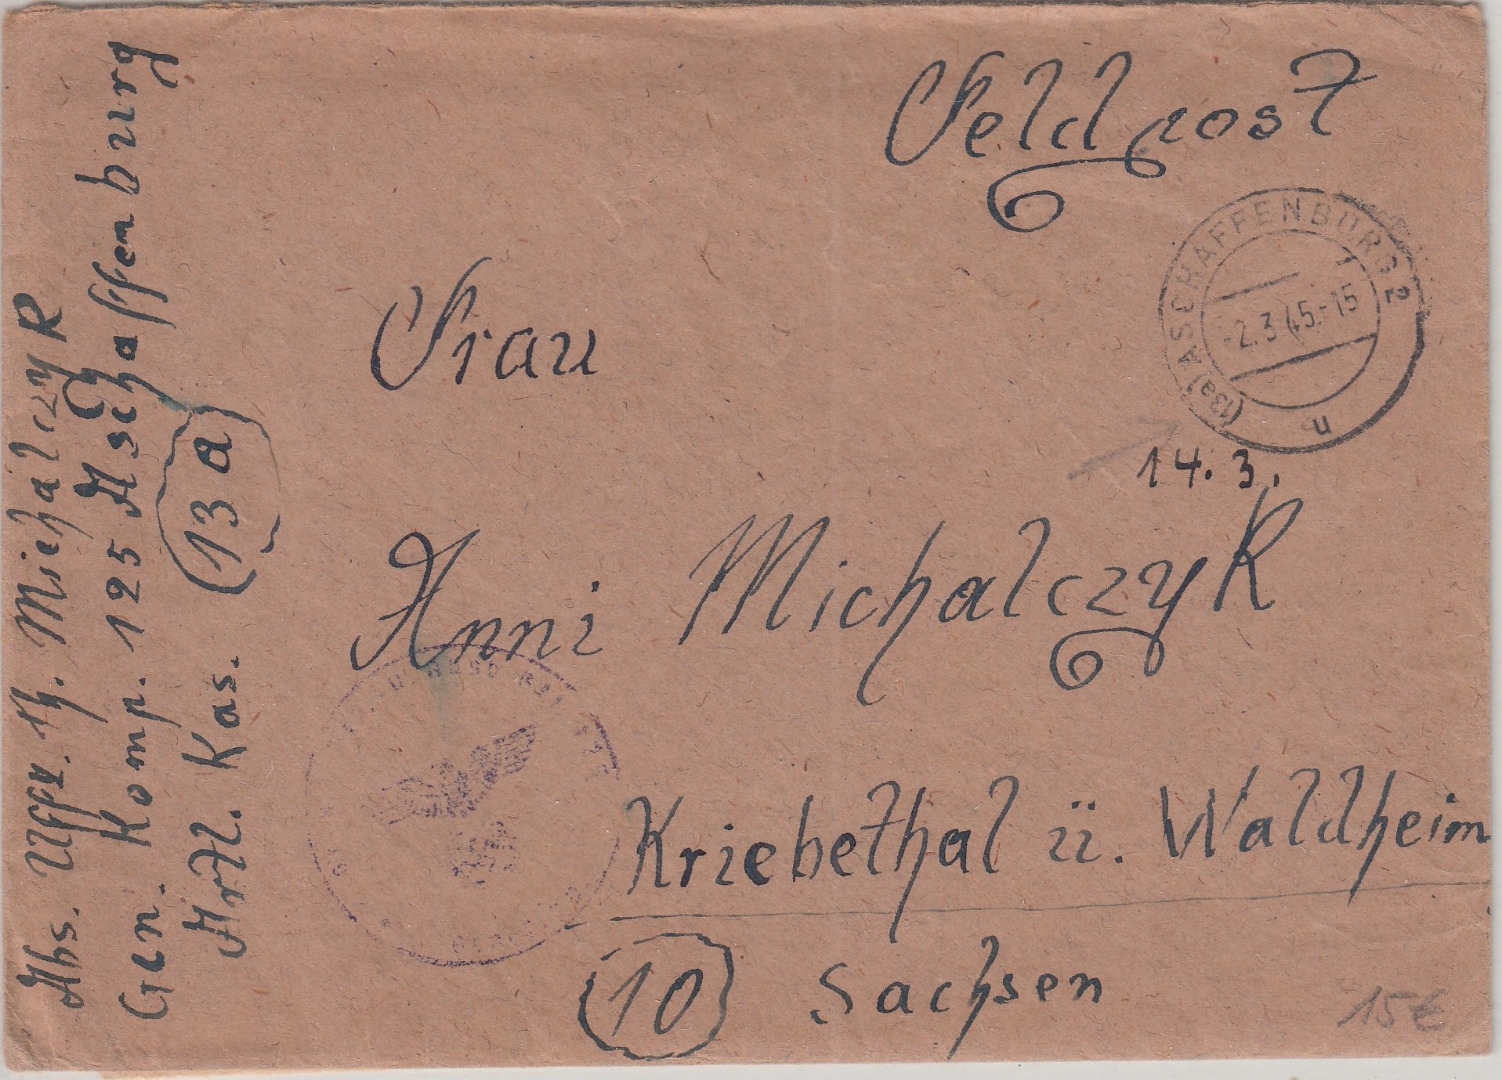 Feldpost
(13a) ASCHAFFENBURG 2
-2.3.45.-15
n
14. 3.
Frau
Anni Michalczyk
Kriebethal ü. Waldheim
(10) Sachsen
15€
Abs. Uffz. Th. Michalczyk
Gen. Komp. 125 Aschaffenburg
Artl. Kas. (13a)